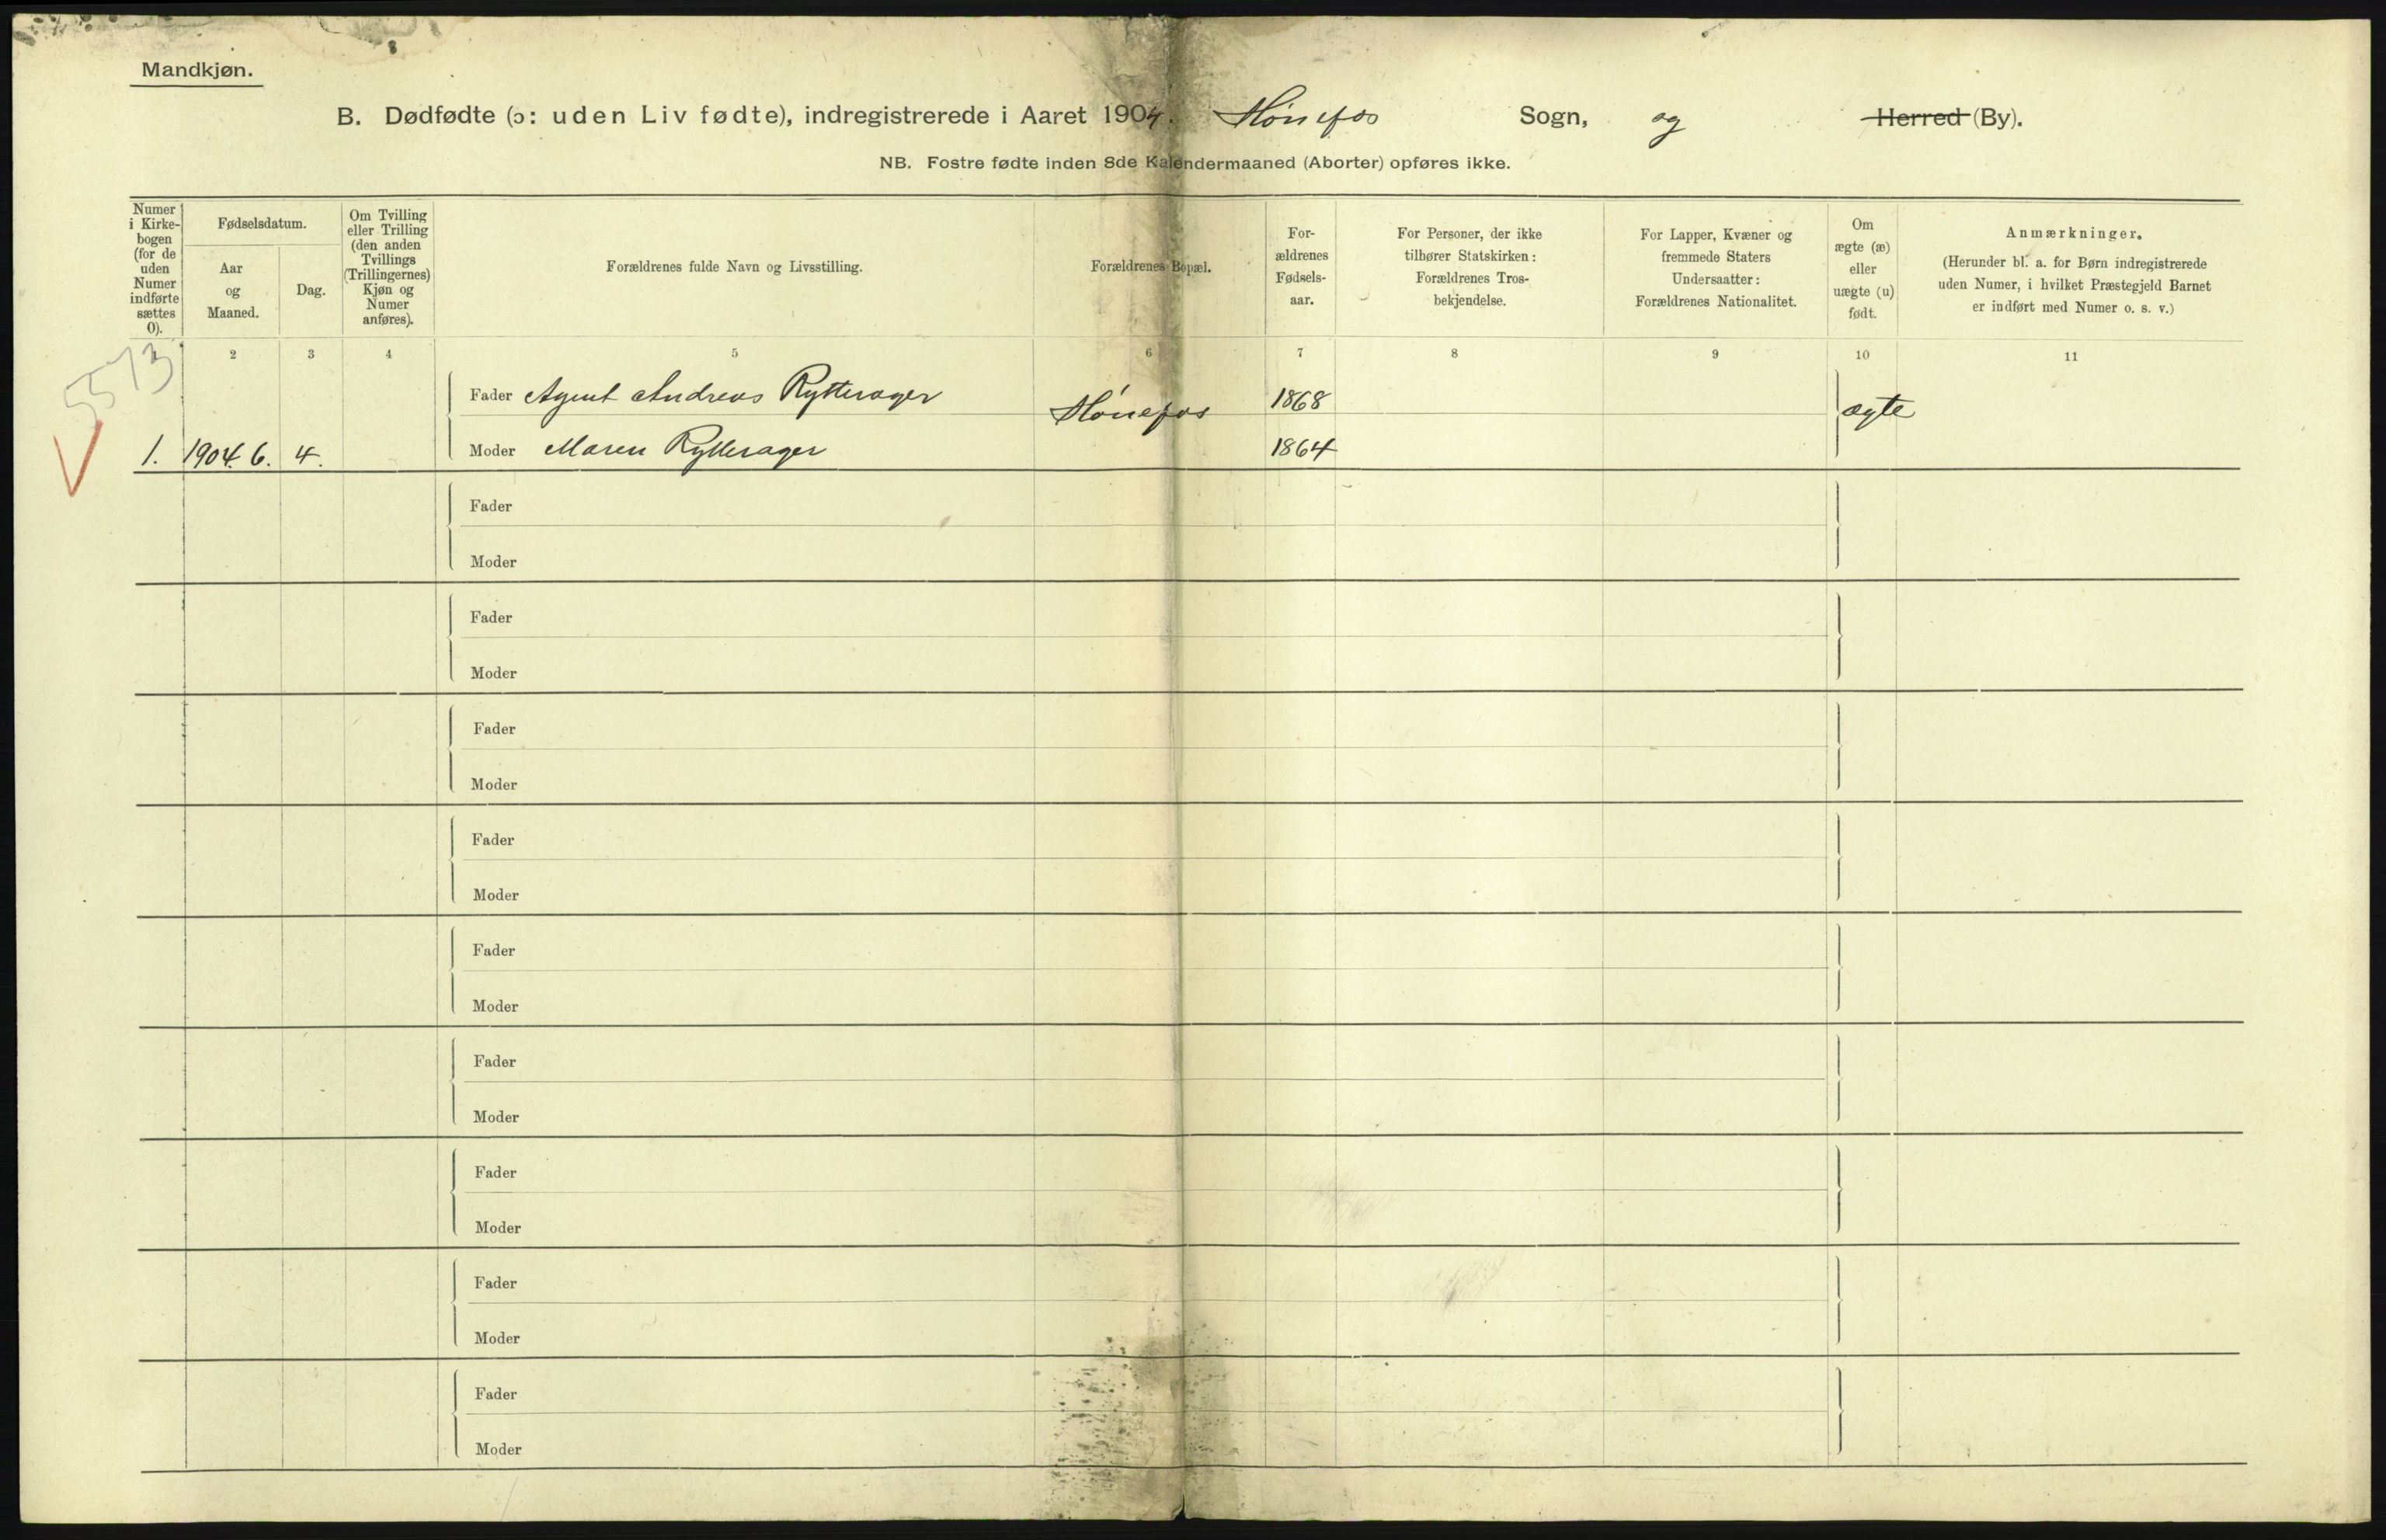 Mandkjøn.
B. Dødfødte (ɔ: uden Liv fødte), indregistrerede i Aaret 1904. Hønefos Sogn, og Herred (By).
NB. Fostre fødte inden 8de Kalendermaaned (Aborter) opføres ikke.
Numer
i Kirke-
bogen
(for de
uden
Numer
indførte
sættes
0).
Fødselsdatum.
Aar
og
Maaned.
Dag.
Om Tvilling
eller Trilling
(den anden
Tvillings
(Trillingernes)
Kjøn og
Numer
anføres).
Forældrenes fulde Navn og Livsstilling.
Forældrenes Bopæl.
For-
ældrenes
Fødsels-
aar.
For Personer, der ikke
tilhører Statskirken:
Forældrenes Tros-
bekjendelse.
For Lapper, Kvæner og
fremmede Staters
Undersaatter:
Forældrenes Nationalitet.
Om
ægte (æ)
eller
uægte (u)
født.
Anmærkninger.
(Herunder bl. a. for Børn indregistrerede
uden Numer, i hvilket Præstegjeld Barnet
er indført med Numer o. s. v.)
2 3 4 5 6 7 8 9 10 11
5573
Fader Agent Andreas Rytterager Hønefos 1868 ægte
1. 1904. 6. 4. Moder Maren Rytterager 1864
Fader
Moder
Fader
Moder
Fader
Moder
Fader
Moder
Fader
Moder
Fader
Moder
Fader
Moder
Fader
Moder
Fader
Moder